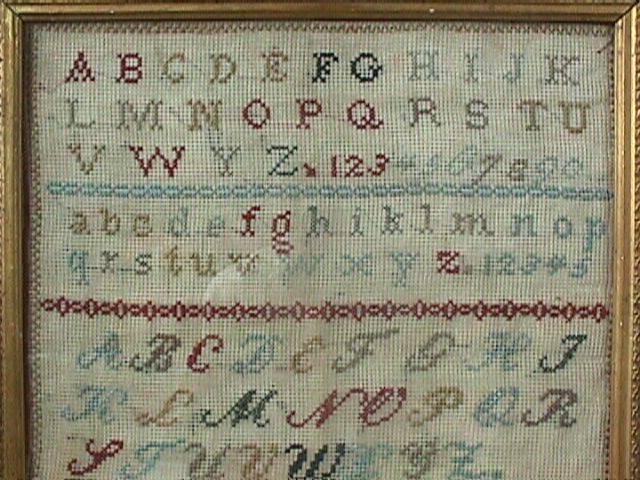 A B C D E F G H I J K
L M N O P Q R S T U
V W Y Z. 1234567890
a b c d e f g h i k l m n o p
q r s t u v w x y z. 12345
A B C D E F G H I
K L M N O P Q R
S T U V W X Y Z.